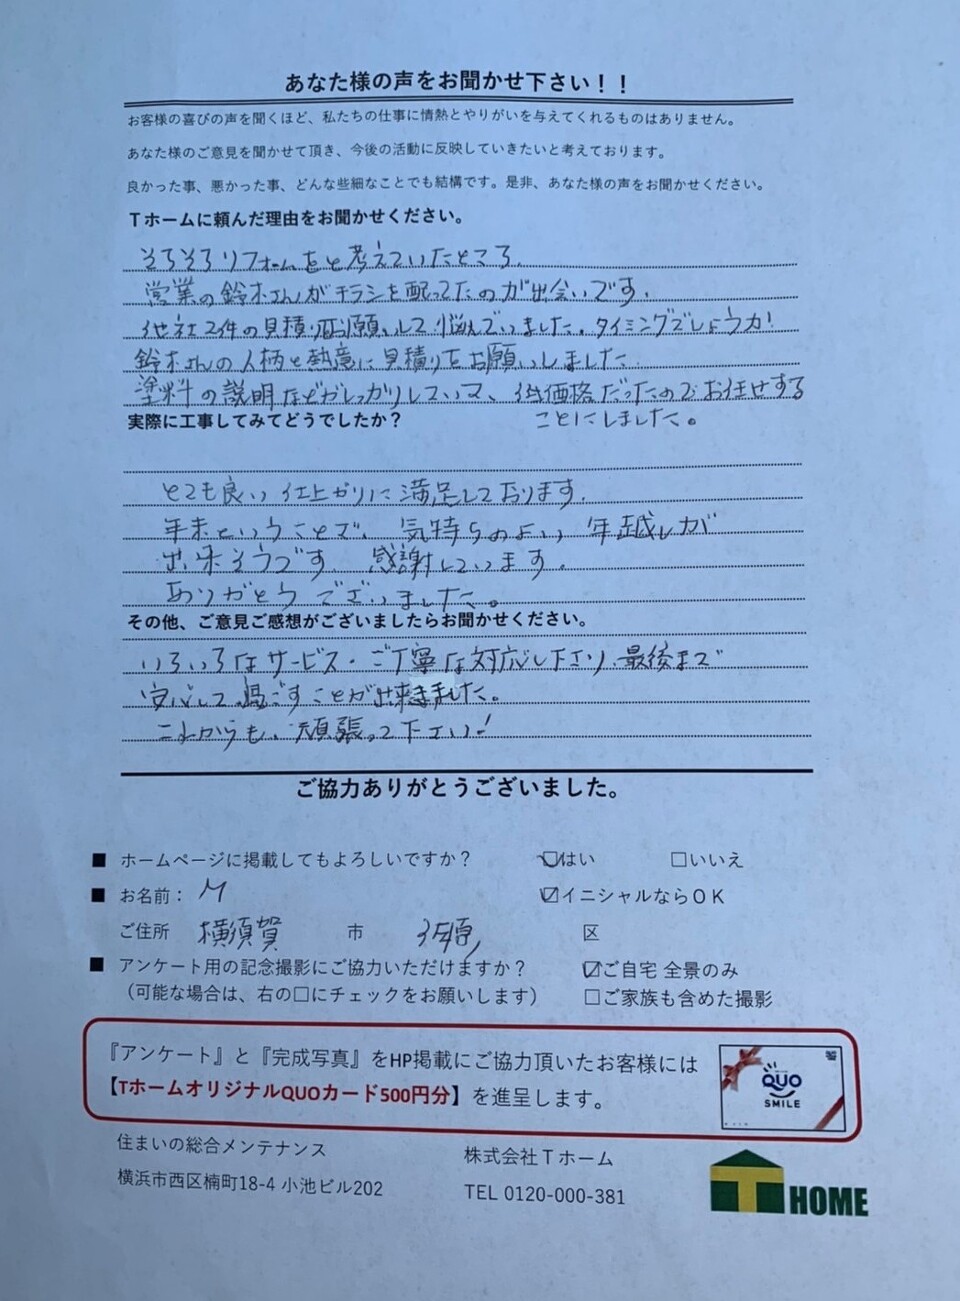 あなた様の声をお聞かせ下さい！！
お客様の喜びの声を聞くほど、私たちの仕事に情熱とやりがいを与えてくれるものはありません。
あなた様のご意見を聞かせて頂き、今後の活動に反映していきたいと考えております。
良かった事、悪かった事、どんな些細なことでも結構です。是非、あなた様の声をお聞かせください。
Ｔホームに頼んだ理由をお聞かせください。
そろそろリフォームをと考えていたところ、
営業の鈴木さんがチラシを配ってたのが出会いです。
他社2件の見積りお願いして悩んでいました。タイミングでしょうか!
鈴木さんの人柄と熱意に見積りをお願いしました
塗料の説明などがしっかりしていて、低価格だったのでお任せする
ことにしました。
実際に工事してみてどうでしたか？
とても良い仕上がりに満足しております。
年末ということで、気持ちのよい年越しが
出来そうです。感謝しています。
ありがとうございました。
その他、ご意見ご感想がございましたらお聞かせください。
いろいろなサービス・ご丁寧な対応し下さり、最後まで
安心して過ごすことが出来ました。
これからも、頑張って下さい!
ご協力ありがとうございました。
■ ホームページに掲載してもよろしいですか？ ☑はい □いいえ
■ お名前： M ☑イニシャルならＯＫ
ご住所 横須賀 市 区
■ アンケート用の記念撮影にご協力いただけますか？ ☑ご自宅 全景のみ
（可能な場合は、右の□にチェックをお願いします） □ご家族も含めた撮影
『アンケート』と『完成写真』をHP掲載にご協力頂いたお客様には
【TホームオリジナルQUOカード500円分】を進呈します。
QUO
SMILE
住まいの総合メンテナンス 株式会社Ｔホーム
横浜市西区楠町18-4 小池ビル202 TEL 0120-000-381
T HOME